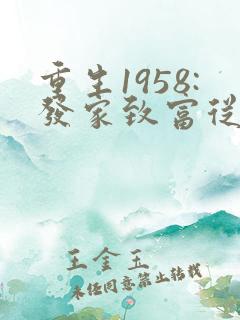 重生1958:
發家致富從
王金玉
未經同意禁止轉載